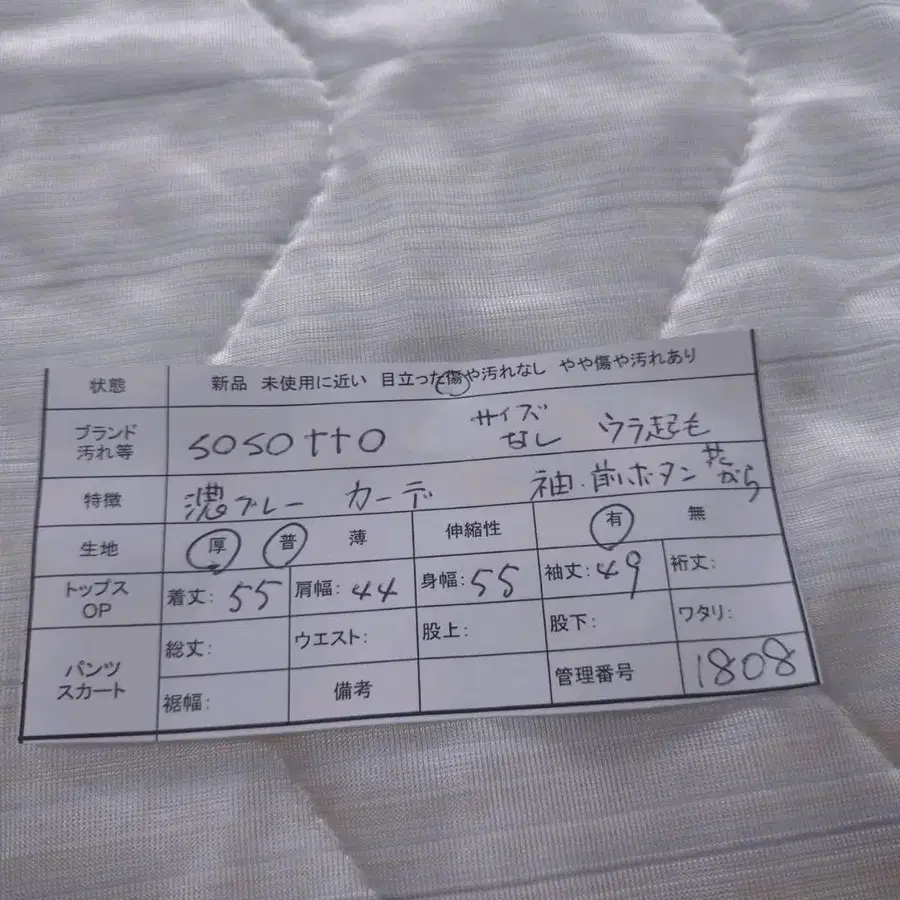 状態 新品 未使用に近い 目立った傷や汚れなし やや傷や汚れあり
ブランド 汚れ等 sosotto サイズなし ウラ起毛
特徴 濃ブルー カーデ 袖.前ボタン 花がら
生地 厚 普 薄 伸縮性 有 無
トップス OP 着丈: 55 肩幅: 44 身幅: 55 袖丈: 49 裄丈:
パンツ スカート 総丈: ウエスト: 股上: 股下: ワタリ:
裾幅: 備考 管理番号 1808